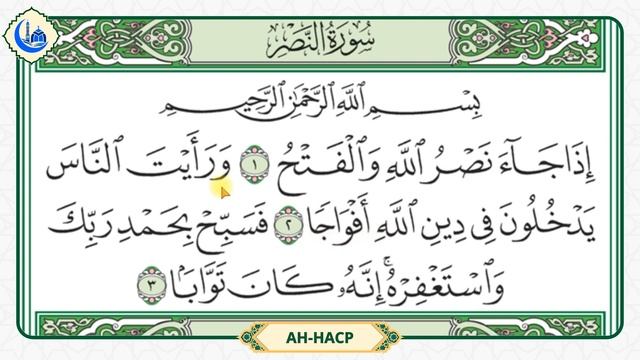 سُورَةُ النَّصْرِ
بِسْمِ اللَّهِ الرَّحْمَٰنِ الرَّحِيمِ
إِذَا جَآءَ نَصْرُ اللَّهِ وَالْفَتْحُ ١ وَرَأَيْتَ النَّاسَ
يَدْخُلُونَ فِي دِينِ اللَّهِ أَفْوَاجًا ٢ فَسَبِّحْ بِحَمْدِ رَبِّكَ
وَاسْتَغْفِرْهُ ۚ إِنَّهُ كَانَ تَوَّابًا ٣
АН-НАСР